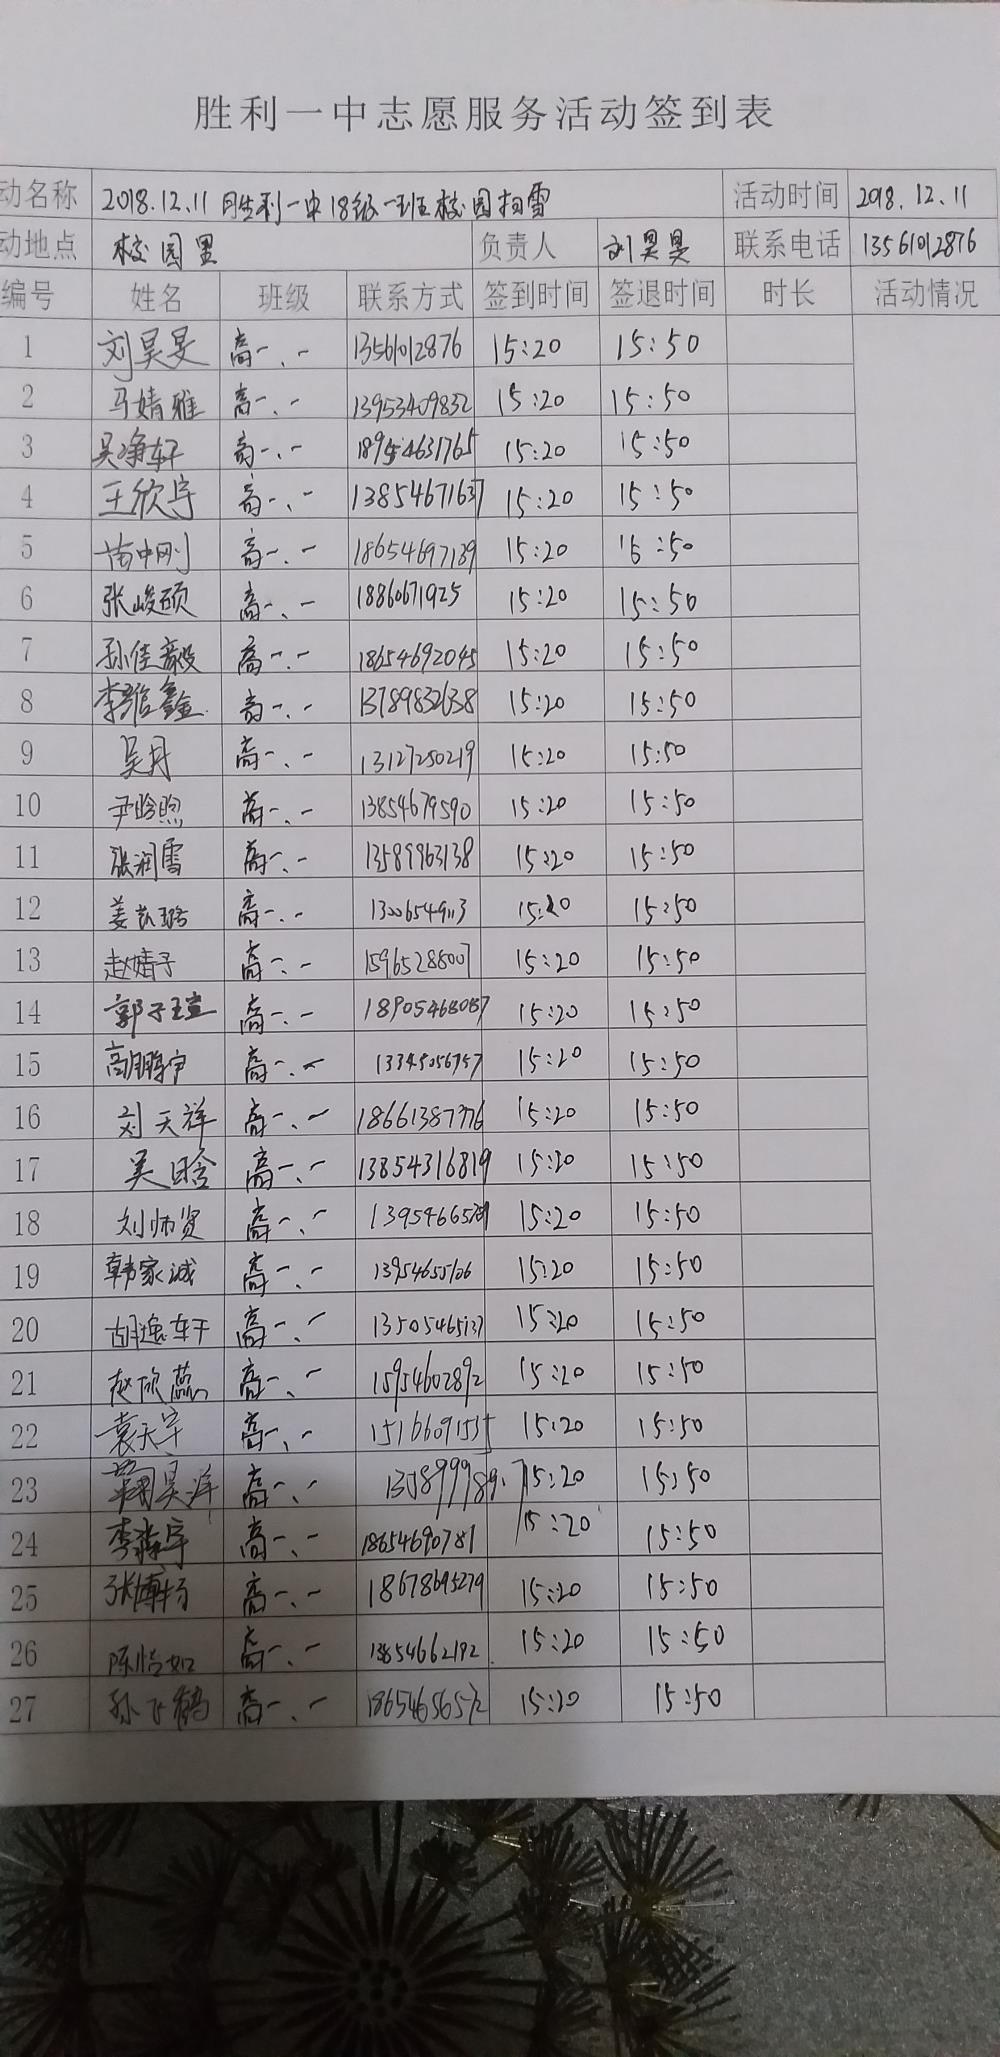 胜利一中志愿服务活动签到表
动名称 2018.12.11 胜利一中18级一班校园扫雪 活动时间 2018.12.11
动地点 校园里 负责人 刘昊旻 联系电话 13561012876
编号 姓名 班级 联系方式 签到时间 签退时间 时长 活动情况
1 刘昊旻 高一.一 13561012876 15:20 15:50
2 马婧雅 高一.一 13953409832 15:20 15:50
3 吴净轩 高一.一 18954631765 15:20 15:50
4 王欣宇 高一.一 13854671637 15:20 15:50
5 苗中刚 高一.一 18654697189 15:20 15:50
6 张峻硕 高一.一 18860671925 15:20 15:50
7 孙佳毅 高一.一 18654692045 15:20 15:50
8 李鑫 高一.一 13789832638 15:20 15:50
9 吴月 高一.一 13127250219 15:20 15:50
10 尹晗煦 高一.一 13854679590 15:20 15:50
11 张润雪 高一.一 13589963138 15:20 15:50
12 姜凯璐 高一.一 13006549113 15:20 15:50
13 赵婧子 高一.一 15965288007 15:20 15:50
14 郭子瑄 高一.一 18905468087 15:20 15:50
15 高鹏宇 高一.一 15:20 15:50
16 刘天祥 高一.一 18661387776 15:20 15:50
17 吴晗 高一.一 13854316819 15:20 15:50
18 刘师贤 高一.一 15:20 15:50
19 韩家诚 高一.一 13954655106 15:20 15:50
20 胡逸轩 高一.一 13505465137 15:20 15:50
21 赵欣蕊 高一.一 15954602892 15:20 15:50
22 袁天宇 高一.一 15166091535 15:20 15:50
23 昊洋 高一.一 15:20 15:50
24 李霖宇 高一.一 18654690781 15:20 15:50
25 张博扬 高一.一 18678695279 15:20 15:50
26 陈怡如 高一.一 13854662192 15:20 15:50
27 孙飞鹤 高一.一 15:20 15:50